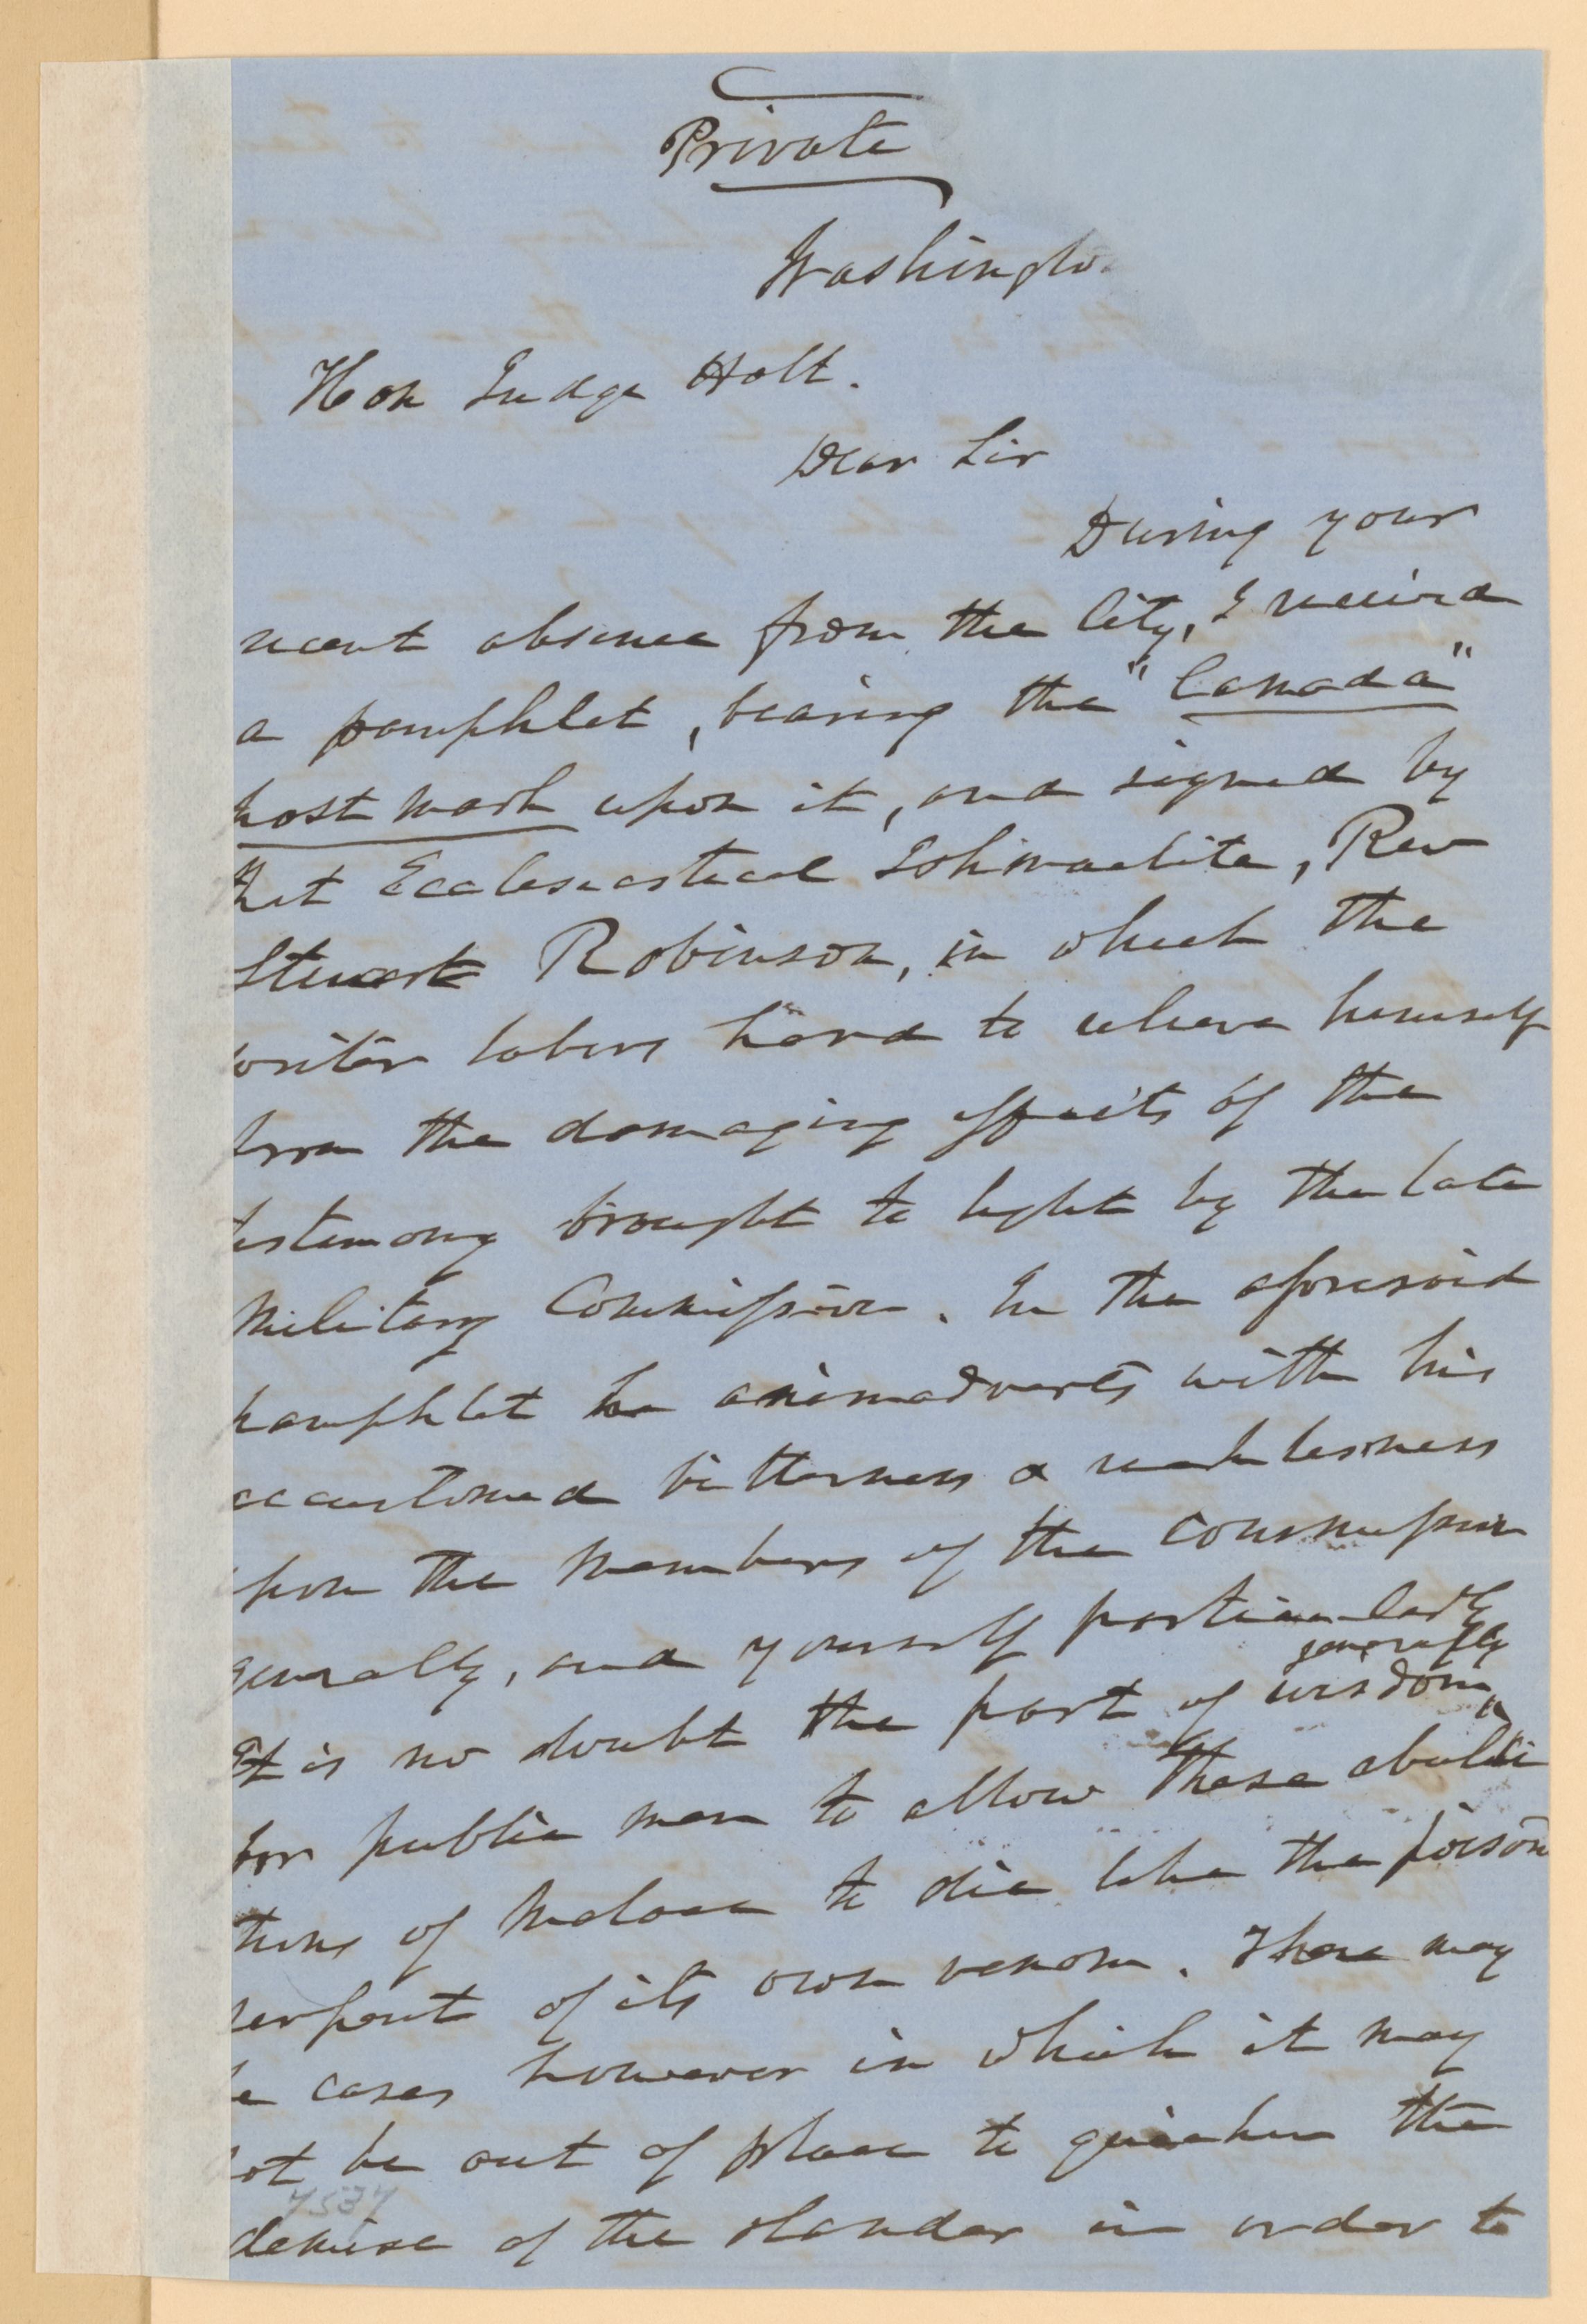 Private
Washingto
Hon Judge Holt.
Dear Sir
During your
recent absence from the City, I received
a pamphlet, bearing the "Canada"
post mark upon it, and signed by
that Ecclesiastical Ishmaelite, Rev
Stuart Robinson, in which the
writer labors hard to relieve himself
from the damaging effects of the
testimony brought to light by the late
Military Commission. In the aforesaid
pamphlet he animadverts with his
accustomed bitterness & recklessness
upon the Members of the Commission
generally, and yourself particularly
generally
It is no doubt the part of wisdom
for public men to allow these ebulli
tions of Malace to die like the poison
serpent of its own venom. There may
be cases however in which it may
not be out of place to quicken the
demise of the slander in order to
7537